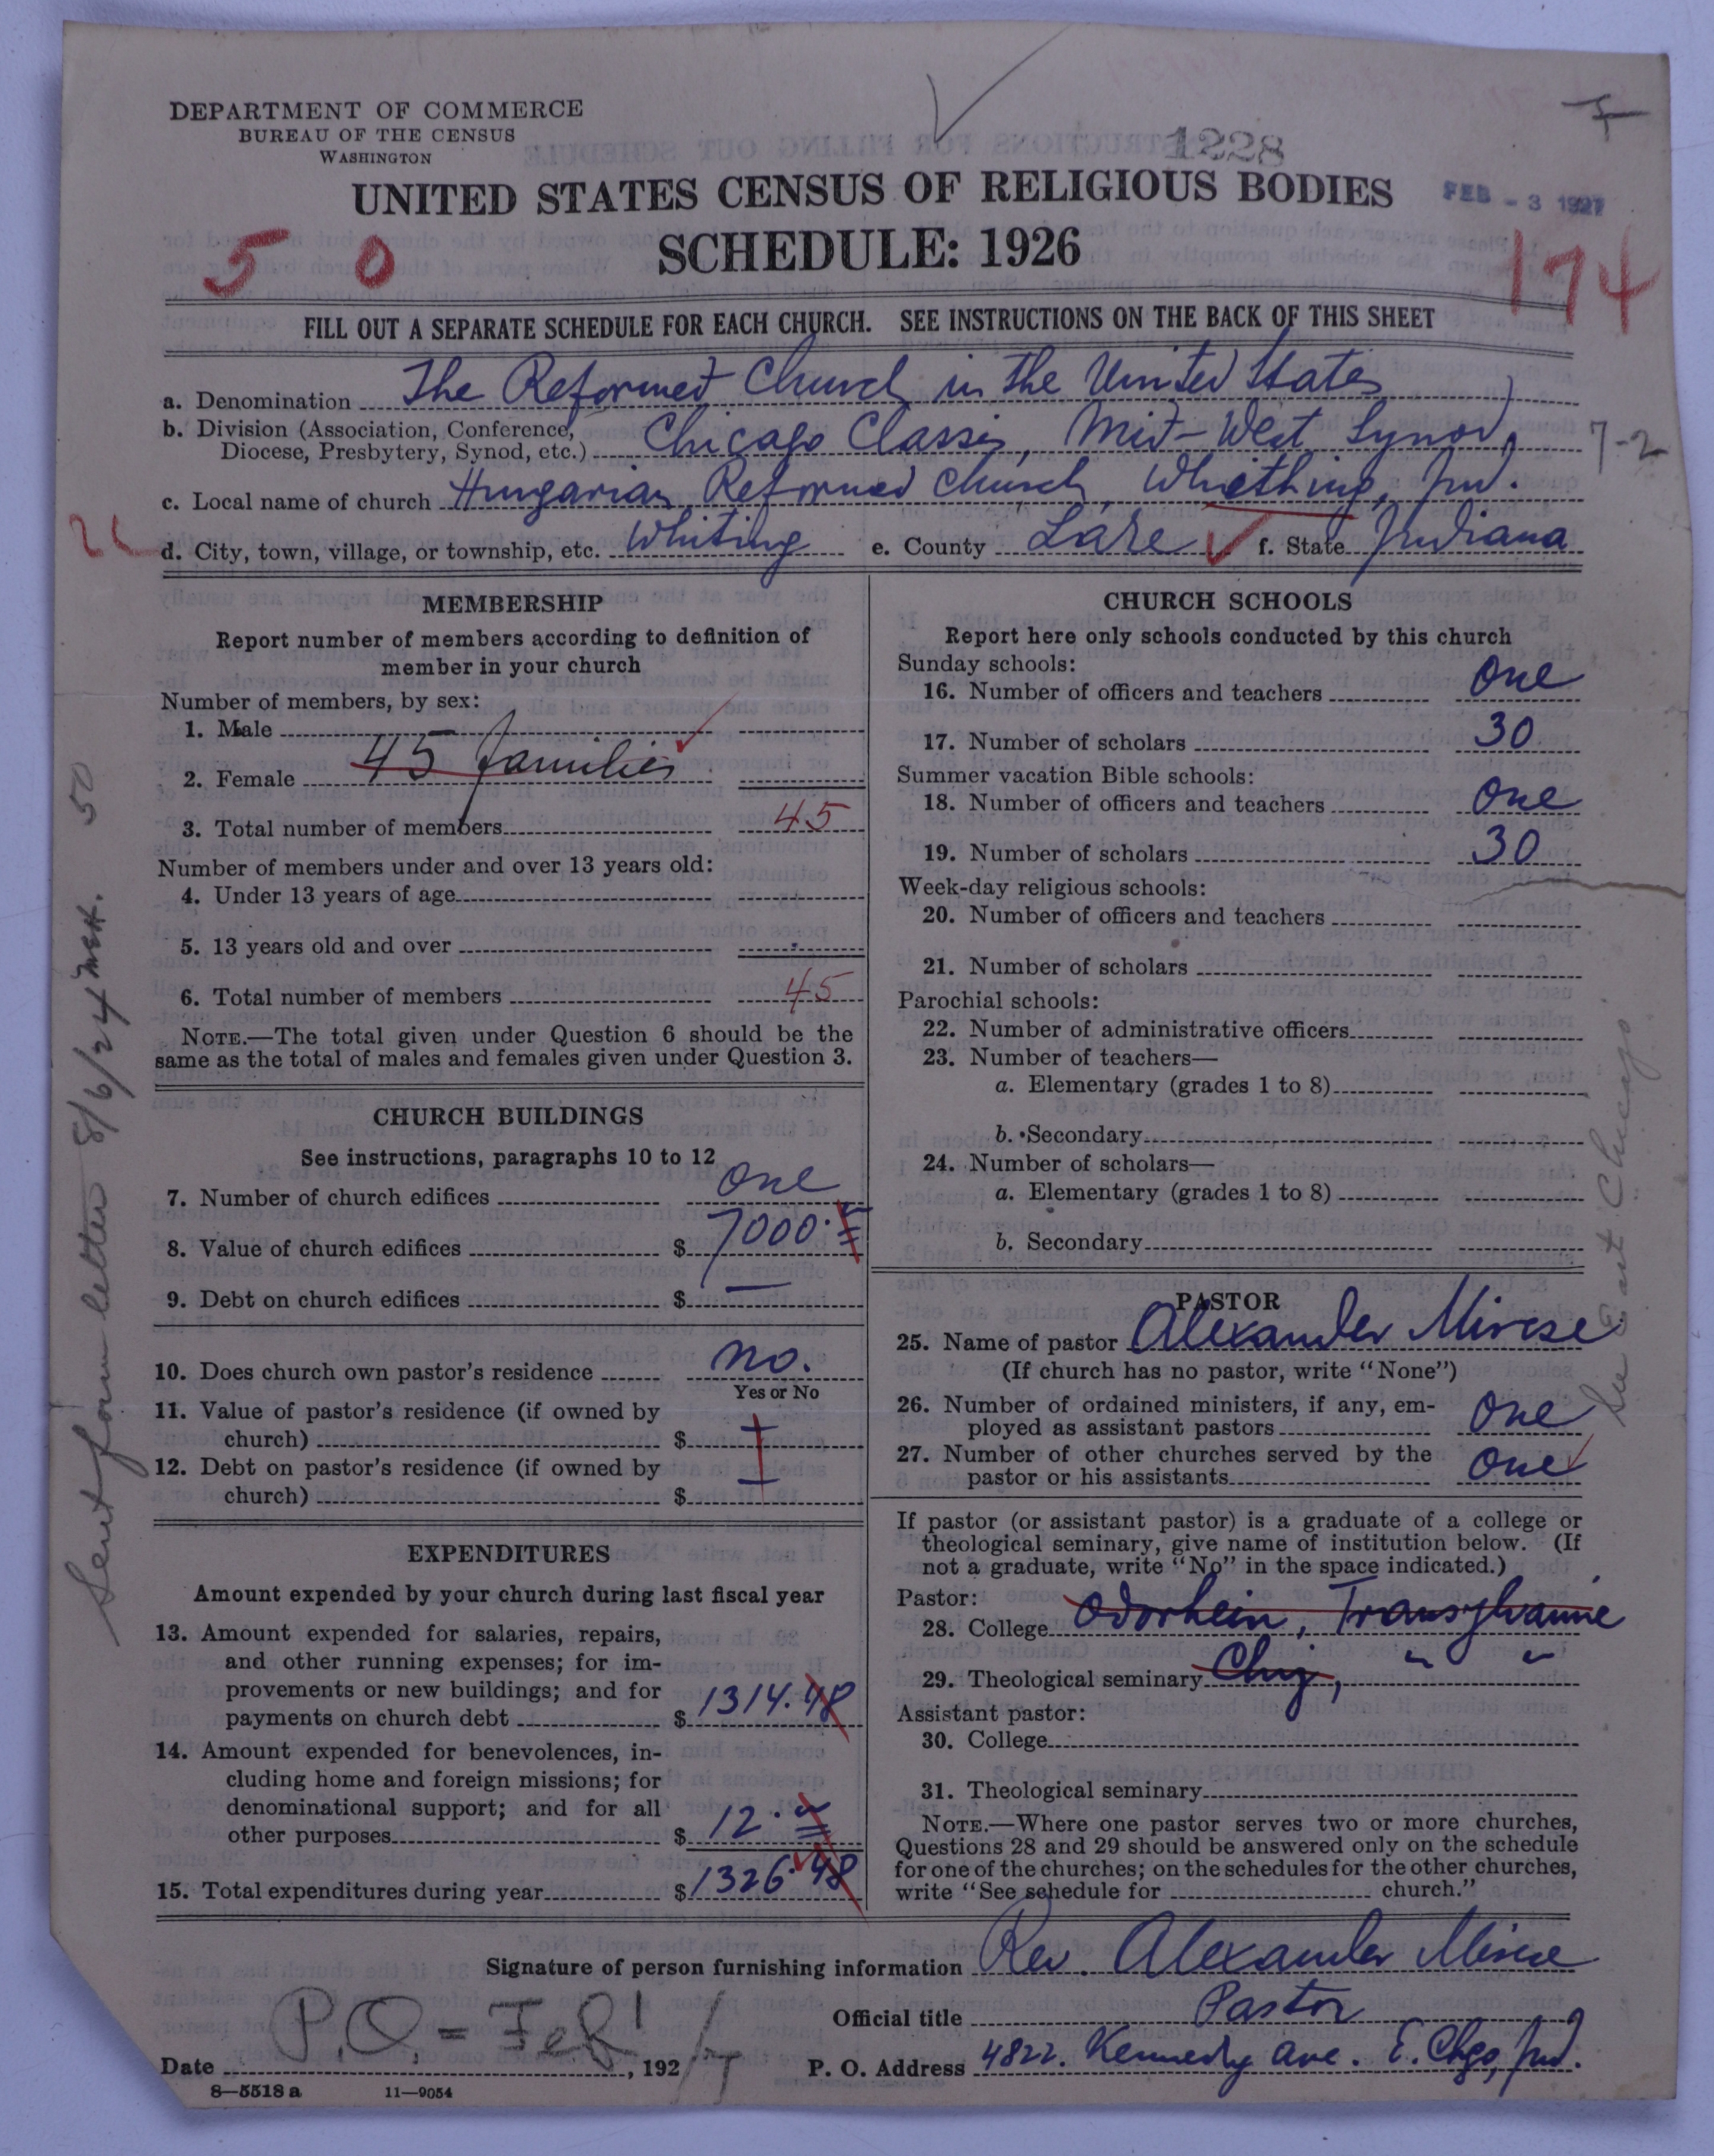 DEPARTMENT OF COMMERCE
BUREAU OF THE CENSUS
WASHINGTON
1228
UNITED STATES CENSUS OF RELIGIOUS BODIES
FEB - 3 1927
SCHEDULE: 1926
5 0
174
FILL OUT A SEPARATE SCHEDULE FOR EACH CHURCH. SEE INSTRUCTIONS ON THE BACK OF THIS SHEET
a. Denomination The Reformed Church in the United States
b. Division (Association, Conference, Diocese, Presbytery, Synod, etc.) Chicago Classis, Mid-West Synod,
7-2
c. Local name of church Hungarian Reformed Church, Whithing, Ind.
d. City, town, village, or township, etc. Whiting e. County Lake f. State Indiana
MEMBERSHIP
Report number of members according to definition of
member in your church
Number of members, by sex:
1. Male
45 families
2. Female
3. Total number of members 45
Number of members under and over 13 years old:
4. Under 13 years of age
5. 13 years old and over
6. Total number of members 45
NOTE.—The total given under Question 6 should be the
same as the total of males and females given under Question 3.
CHURCH BUILDINGS
See instructions, paragraphs 10 to 12
7. Number of church edifices One
8. Value of church edifices $ 7000.
9. Debt on church edifices $ —
10. Does church own pastor's residence no.
Yes or No
11. Value of pastor's residence (if owned by
church) $ —
12. Debt on pastor's residence (if owned by
church) $ —
EXPENDITURES
Amount expended by your church during last fiscal year
13. Amount expended for salaries, repairs,
and other running expenses; for im-
provements or new buildings; and for
payments on church debt $ 1314.48
14. Amount expended for benevolences, in-
cluding home and foreign missions; for
denominational support; and for all
other purposes $ 12.
15. Total expenditures during year $ 1326.48
CHURCH SCHOOLS
Report here only schools conducted by this church
Sunday schools:
16. Number of officers and teachers One
17. Number of scholars 30
Summer vacation Bible schools:
18. Number of officers and teachers One
19. Number of scholars 30
Week-day religious schools:
20. Number of officers and teachers
21. Number of scholars
Parochial schools:
22. Number of administrative officers
23. Number of teachers—
a. Elementary (grades 1 to 8)
b. Secondary
24. Number of scholars—
a. Elementary (grades 1 to 8)
b. Secondary
PASTOR
25. Name of pastor Alexander Mircse
(If church has no pastor, write "None")
26. Number of ordained ministers, if any, em-
ployed as assistant pastors One
27. Number of other churches served by the
pastor or his assistants One
If pastor (or assistant pastor) is a graduate of a college or
theological seminary, give name of institution below. (If
not a graduate, write "No" in the space indicated.)
Pastor:
28. College Odorhein, Transylvanie
29. Theological seminary Cluj, " "
Assistant pastor:
30. College
31. Theological seminary
NOTE.—Where one pastor serves two or more churches,
Questions 28 and 29 should be answered only on the schedule
for one of the churches; on the schedules for the other churches,
write "See schedule for church."
Signature of person furnishing information Rev. Alexander Mircse
Official title Pastor
Date P.O. = Feb 1, 1927 P. O. Address 4822. Kennedy ave. E. Chgo, Ind.
8—5518 a 11—9054
Sent form letter 8/6/27 50
See East Chicago